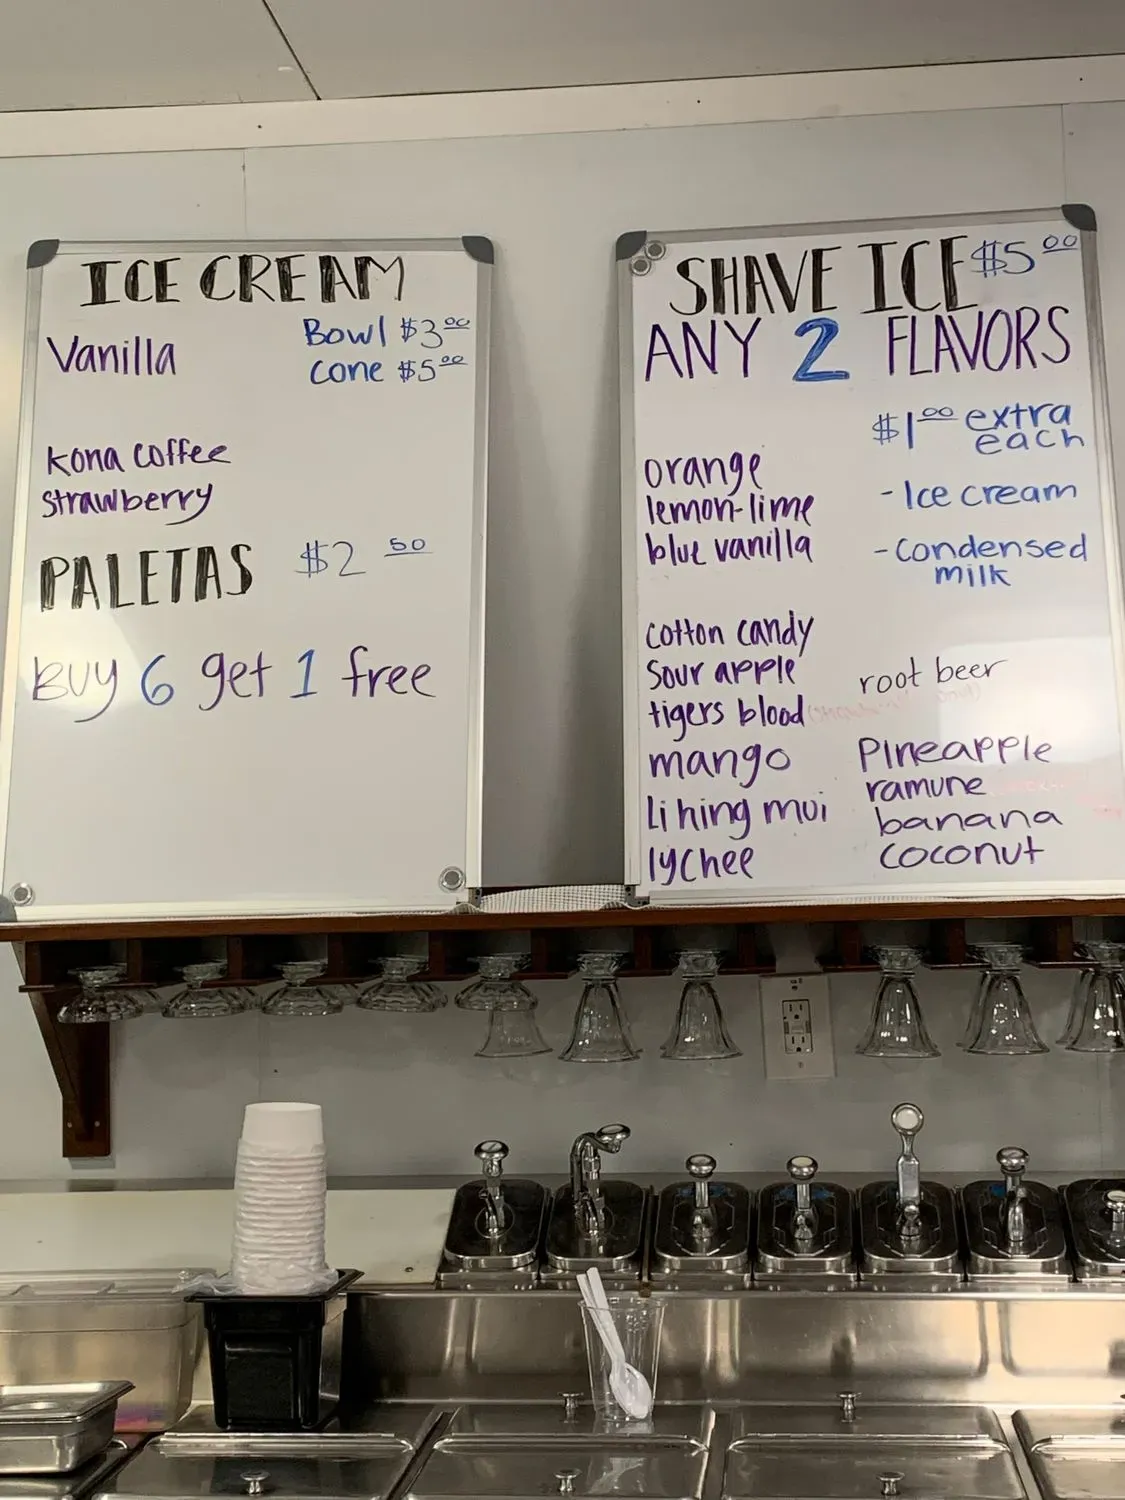 ICE CREAM
Vanilla
Bowl $3.00
cone $5.00
kona coffee
strawberry
PALETAS $2.50
Buy 6 get 1 free
SHAVE ICE $5.00
ANY 2 FLAVORS
$1.00 extra
each
- Ice cream
- condensed
milk
orange
lemon-lime
blue vanilla
cotton candy
sour apple
tigers blood
mango
Li hing mui
lychee
root beer
Pineapple
ramune
banana
coconut